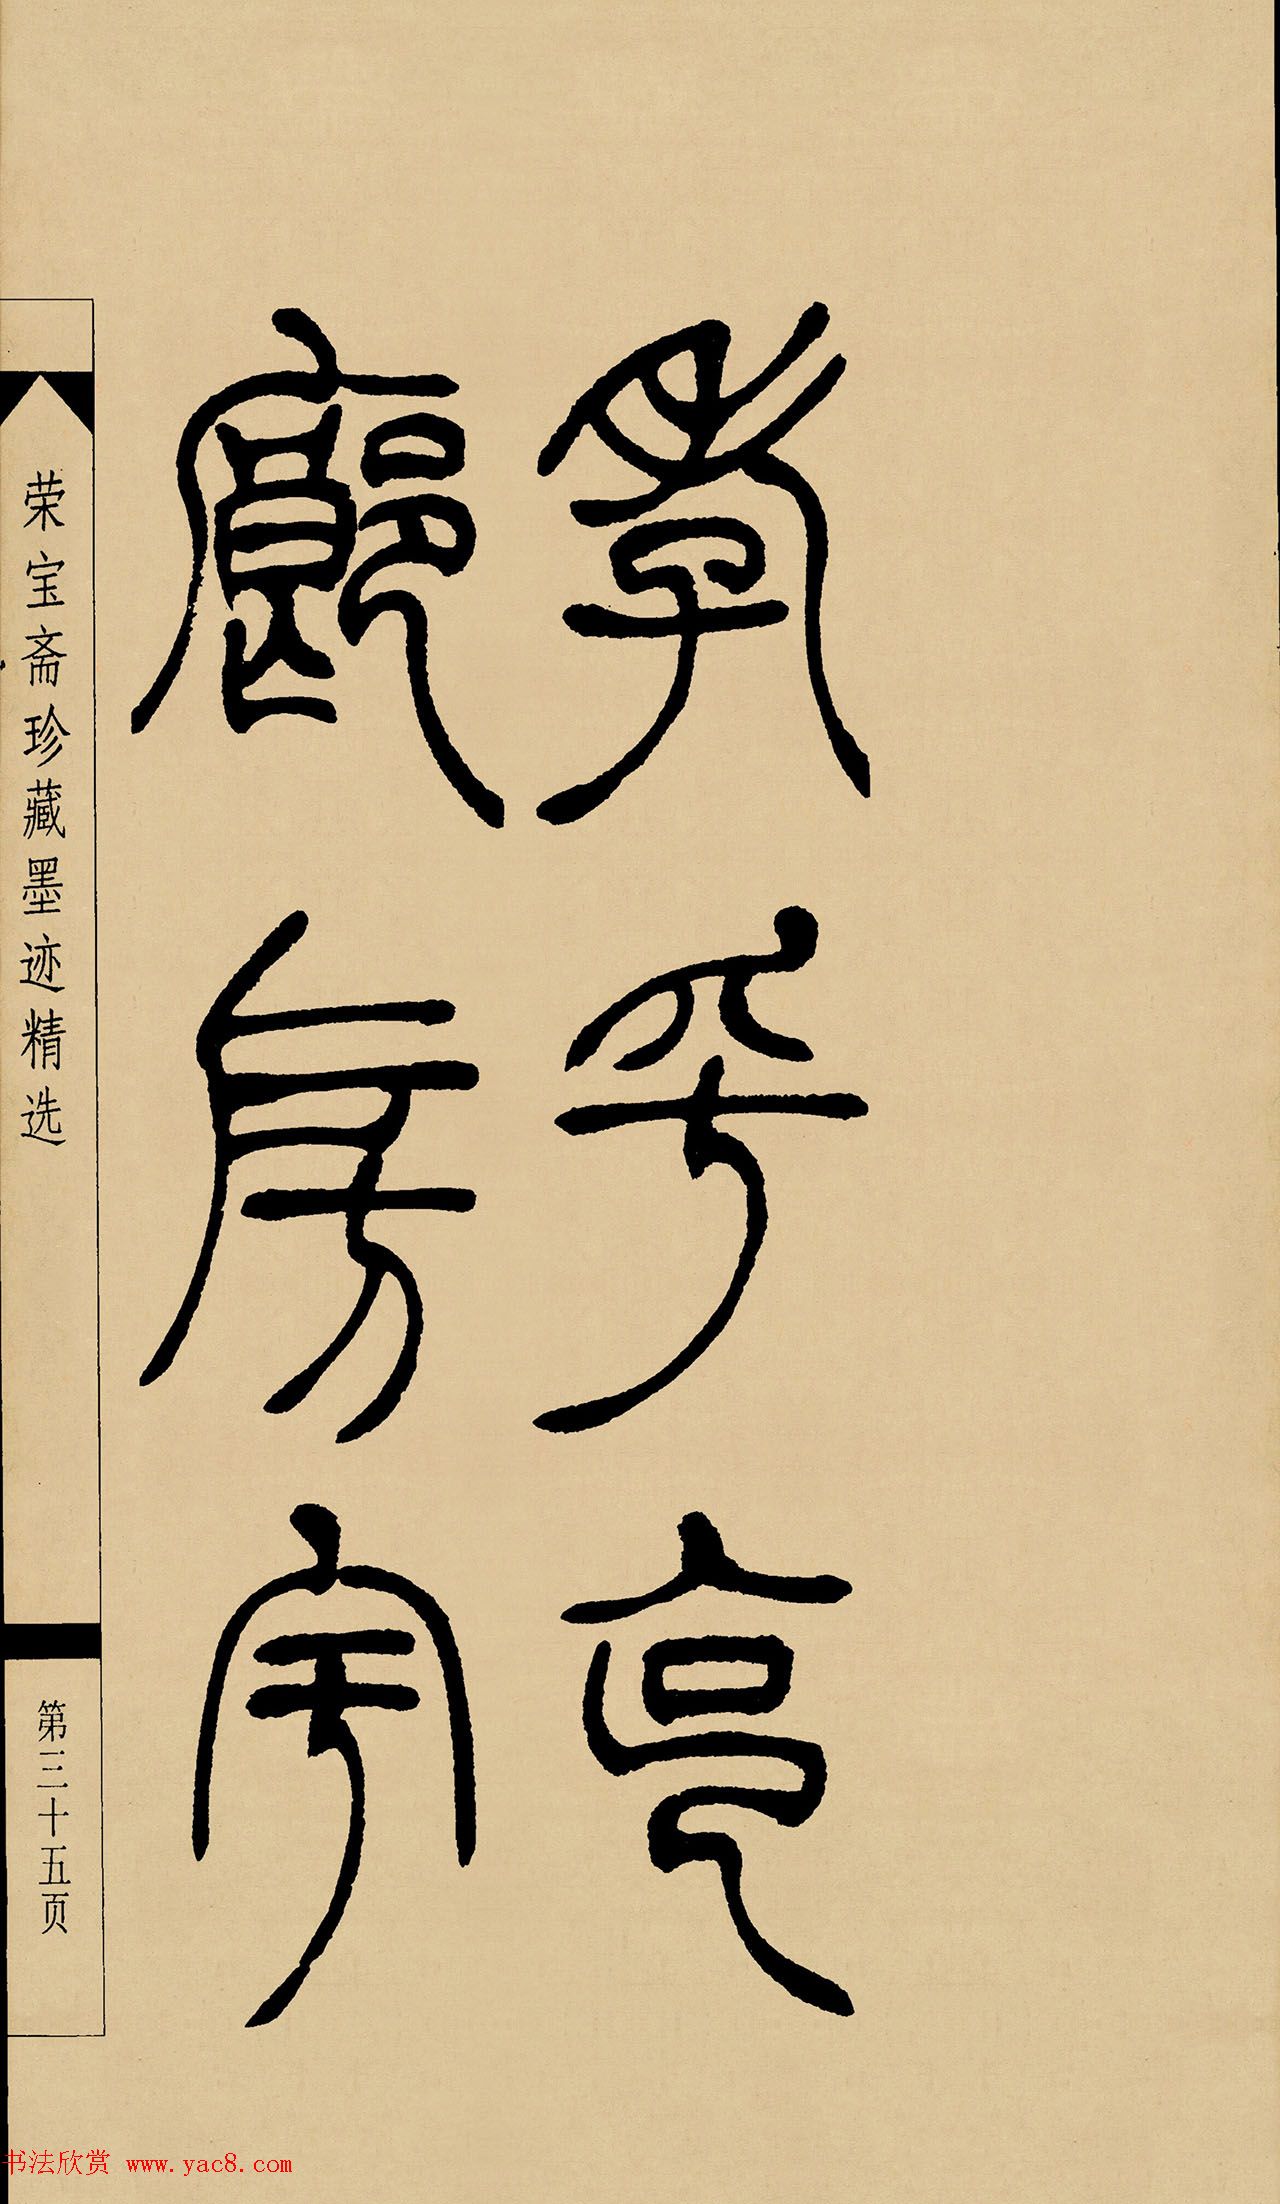 孝乎亨
廊房宇
荣宝斋珍藏墨迹精选
第三十五页
书法欣赏 www.yac8.com